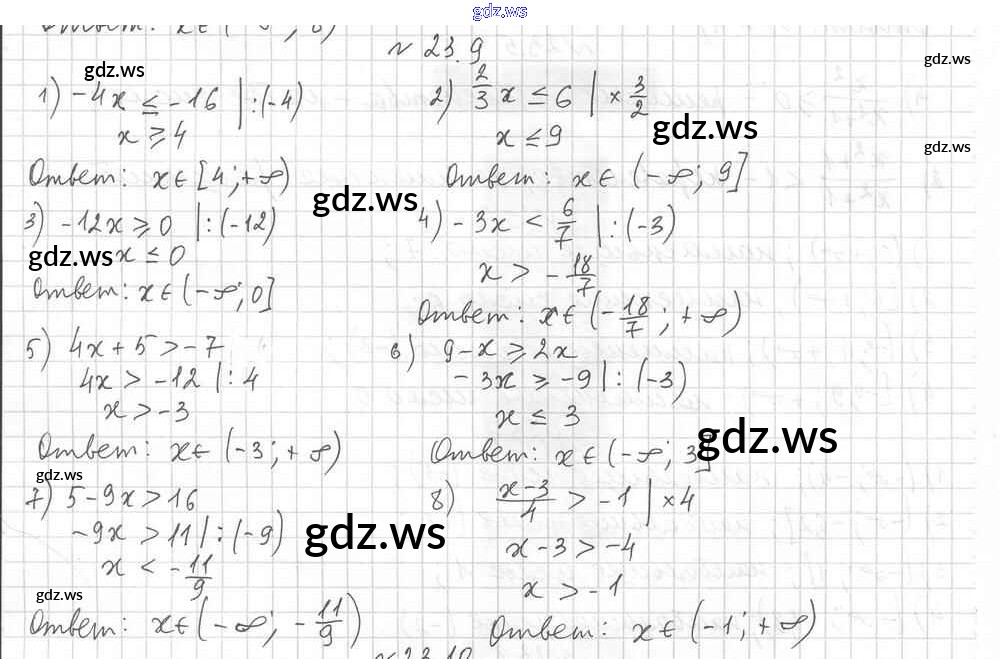 gdz.ws
Ответ: x∈(
№ 23.9
gdz.ws
gdz.ws
1) -4x ≤ -16 | :(-4)
x ≥ 4
Ответ: x∈[4;+∞)
2) 2/3 x ≤ 6 | × 3/2
x ≤ 9
gdz.ws
gdz.ws
Ответ: x∈ (-∞; 9]
gdz.ws
3) -12x ≥ 0 | :(-12)
gdz.ws x ≤ 0
Ответ: x∈(-∞;0]
4) -3x < 6/7 | :(-3)
x > -18/7
Ответ: x∈(-18/7; +∞)
5) 4x + 5 > -7
4x > -12 | : 4
x > -3
Ответ: x∈ (-3;+∞)
6) 9-x ≥ 2x
-3x ≥ -9 | : (-3)
x ≤ 3
gdz.ws
Ответ: x∈(-∞; 3]
gdz.ws
7) 5-9x > 16
-9x > 11 | :(-9)
gdz.ws
x < -11/9
gdz.ws
Ответ: x∈(-∞; -11/9)
8) x-3/4 > -1 | ×4
x-3 > -4
x > -1
Ответ: x∈ (-1;+∞)
№23.10